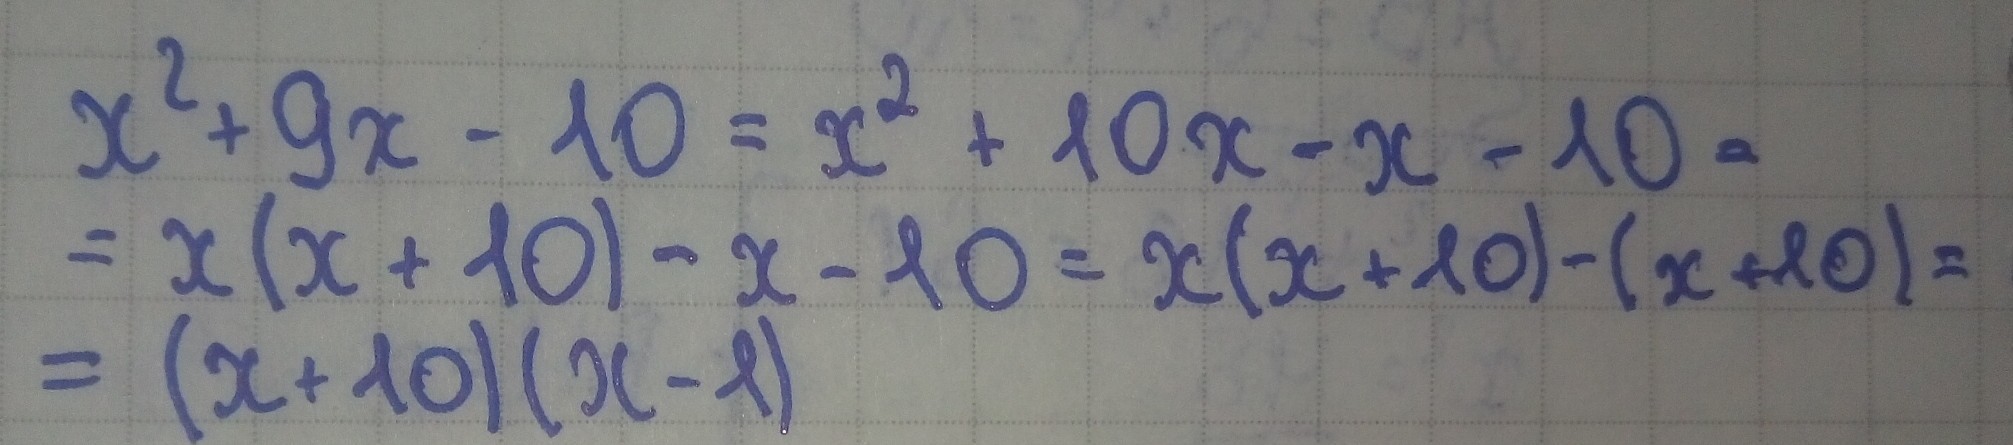 x² + 9x - 10 = x² + 10x - x - 10 =
= x(x + 10) - x - 10 = x(x + 10) - (x + 10) =
= (x + 10)(x - 1)